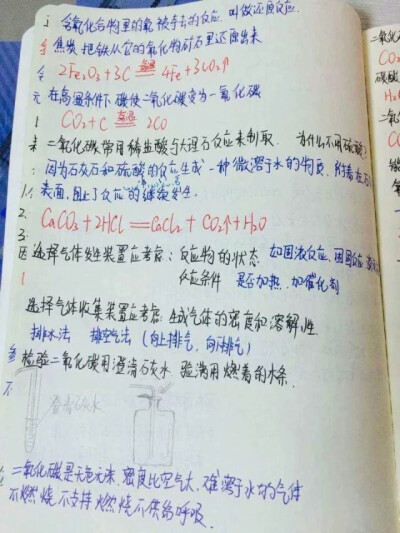 含氧化合物里的氧被夺去的反应,叫做还原反应
焦炭 把铁从它的氧化物矿石里还原出来
2Fe₂O₃+3C 高温 4Fe+3CO₂↑
在高温条件下 碳使二氧化碳变为一氧化碳
CO₂+C 高温 2CO
二氧化碳常用稀盐酸与大理石反应来制取. 为什么不用硫酸?
因为石灰石和硫酸的反应生成一种微溶于水的物质,附着在石
表面,阻止了反应的继续发生.
CaCO₃+2HCl═CaCl₂+CO₂↑+H₂O
选择气体发生装置应考虑:反应物的状态 如固液反应,固固反应
反应条件 是否加热.加催化剂
选择气体收集装置应考虑 生成气体的密度和溶解性
排水法 排空气法(向上排气,向下排气)
检验二氧化碳用澄清石灰水.验满用燃着的木条.
澄清石灰水
二氧化碳是无色无味,密度比空气大,难溶于水的气体
不燃烧 不支持燃烧 不供给呼吸.